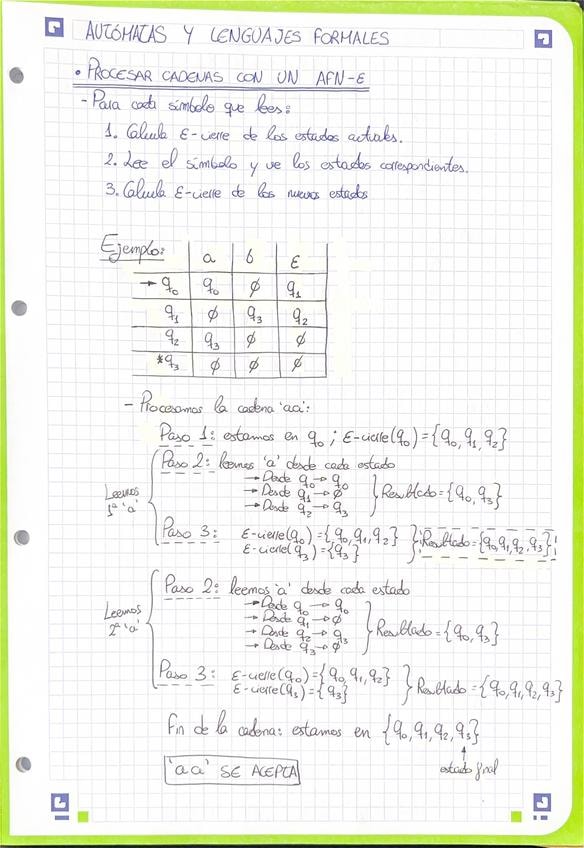 AUTÓMATAS Y LENGUAJES FORMALES
• PROCESAR CADENAS CON UN AFN-ε
- Para cada símbolo que lees:
1. Calcula ε-cierre de los estados actuales.
2. Lee el símbolo y ve los estados correspondientes.
3. Calcula ε-cierre de los nuevos estados
Ejemplo:
a b ε
→ q0 q0 ∅ q1
q1 ∅ q3 q2
q2 q3 ∅ ∅
*q3 ∅ ∅ ∅
- Procesamos la cadena 'aa':
Paso 1: estamos en q0; ε-cierre(q0) = {q0, q1, q2}
Leemos 1ª 'a'
Paso 2: leemos 'a' desde cada estado
→ Desde q0 → q0
→ Desde q1 → ∅
→ Desde q2 → q3
Resultado = {q0, q3}
Paso 3: ε-cierre(q0) = {q0, q1, q2}
ε-cierre(q3) = {q3}
Resultado = {q0, q1, q2, q3}
Leemos 2ª 'a'
Paso 2: leemos 'a' desde cada estado
→ Desde q0 → q0
→ Desde q1 → ∅
→ Desde q2 → q3
→ Desde q3 → ∅
Resultado = {q0, q3}
Paso 3: ε-cierre(q0) = {q0, q1, q2}
ε-cierre(q3) = {q3}
Resultado = {q0, q1, q2, q3}
Fin de la cadena: estamos en {q0, q1, q2, q3}
estado final
'aa' SE ACEPTA